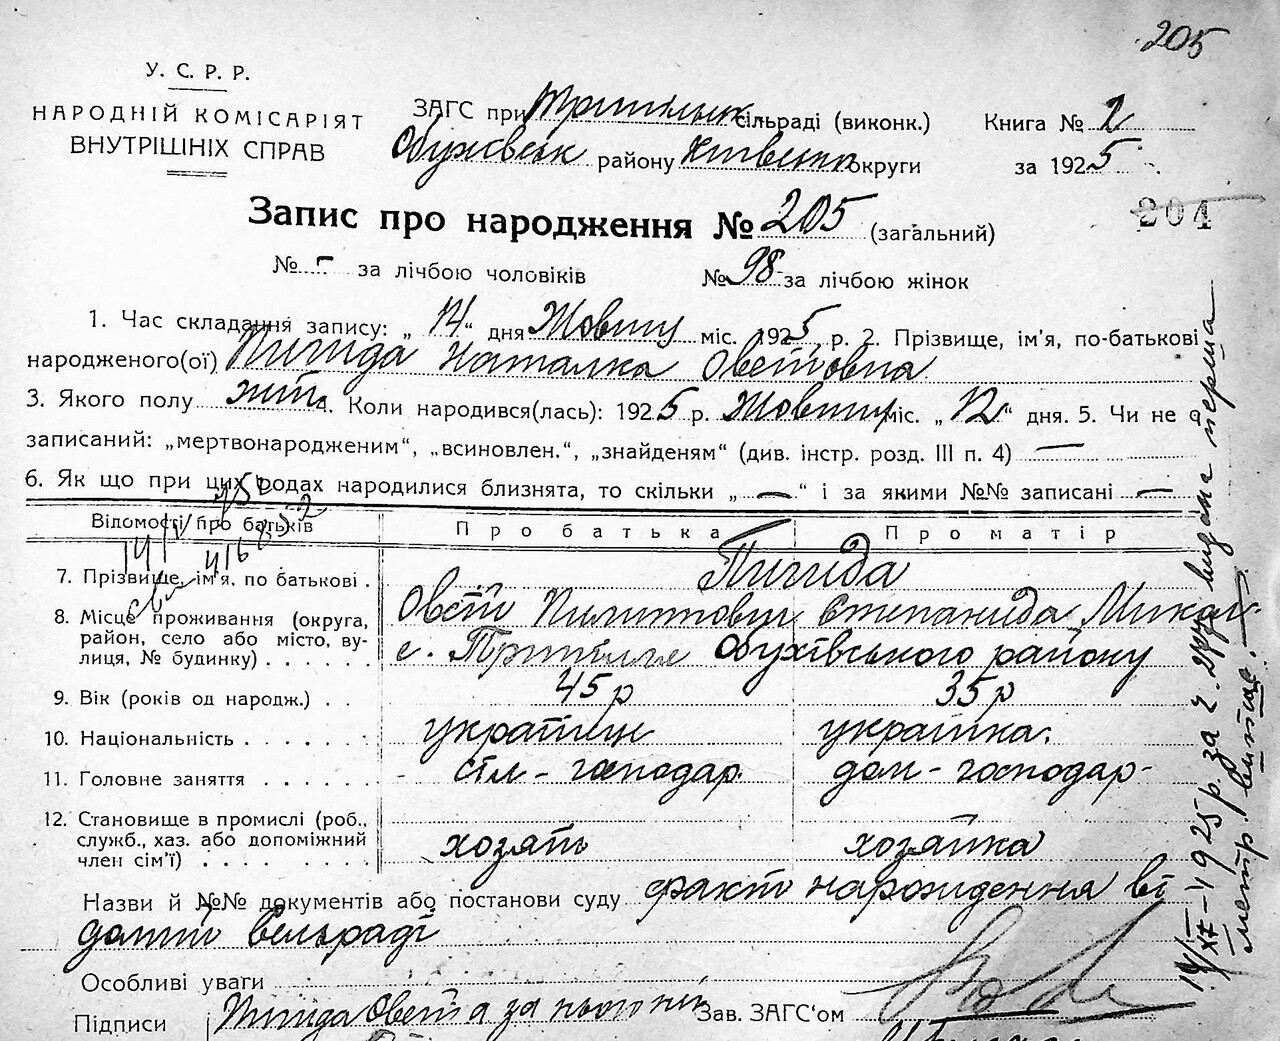 205
У. С. Р. Р.
НАРОДНІЙ КОМІСАРІЯТ
ВНУТРІШНІХ СПРАВ
ЗАГС при Трипільск. сільраді (виконк.)
Обухівськ району Київська округи
Книга № 2
за 1925 р.
Запис про народження № 205 (загальний)
204
№ - за лічбою чоловіків № 98 за лічбою жінок
1. Час складання запису: „ 14 “ дня Жовтну міс. 1925 р. 2. Прізвище, ім'я, по-батькові
народженого(ої) Пигида Наталка Овстовна
3. Якого полу жін. 4. Коли народився(лась): 1925 р. Жовтну міс. „ 12 “ дня. 5. Чи не є
записаний: „мертвонародженим“, „всиновлен.“, „знайденям“ (див. інстр. розд. III п. 4) —
6. Як що при цих родах народилися близнята, то скільки „ — “ і за якими №№ записані —
Відомості про батьків Про батька Про матір
7. Прізвище, ім'я, по батькові . Пигида
Овсій Пилипович Степанида Микол
8. Місце проживання (округа,
район, село або місто, ву-
лиця, № будинку) . . . . . . с. Трипілля Обухівського району
9. Вік (років од народж.) . . 45 р 35 р
10. Національність . . . . . . . українець українка.
11. Головне заняття . . . . . . сіл-господар дом-господар-
12. Становище в промислі (роб.,
служб., хаз. або допоміжний
член сім'ї) . . . . . . . . . хозяїн хозяйка
Назви й №№ документів або постанови суду факт нарождення ві
домий сельраді
Особливі уваги
Підписи Пигида Овсій а за нього Зав. ЗАГС'ом
14/XII-1925 р за № видана перша
метр. витяг.